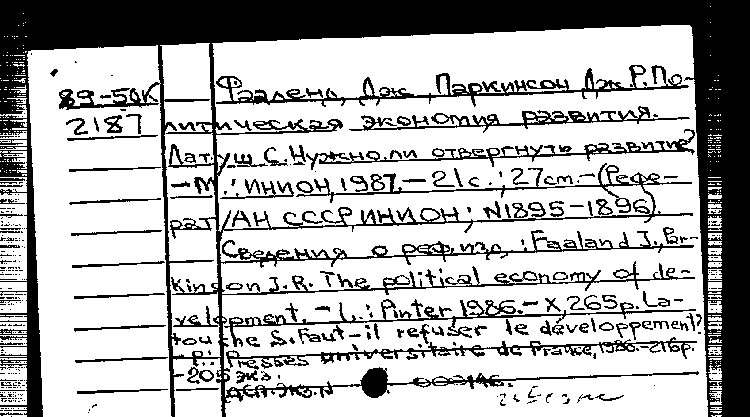 89-5ОК Фааленд, Дж, Паркинсон Дж.Р. По-
2187 литическая экономия развития.
Латуш С. Нужно ли отвергнуть развитие?
-М.: ИНИОН, 1987.-21с.; 27cm.-(Рефе-
рат/АН СССР, ИНИОН; N1895-1896).
Сведения о реф.изд.: Faaland J., Par-
kinson J.R. The political economy of de-
velopment. - L.: Pinter, 1986.-X, 265p. La-
touche S. Faut-il refuser le développement?
-P.: Presses universitaire de France, 1986.-216p.
-205 экз.